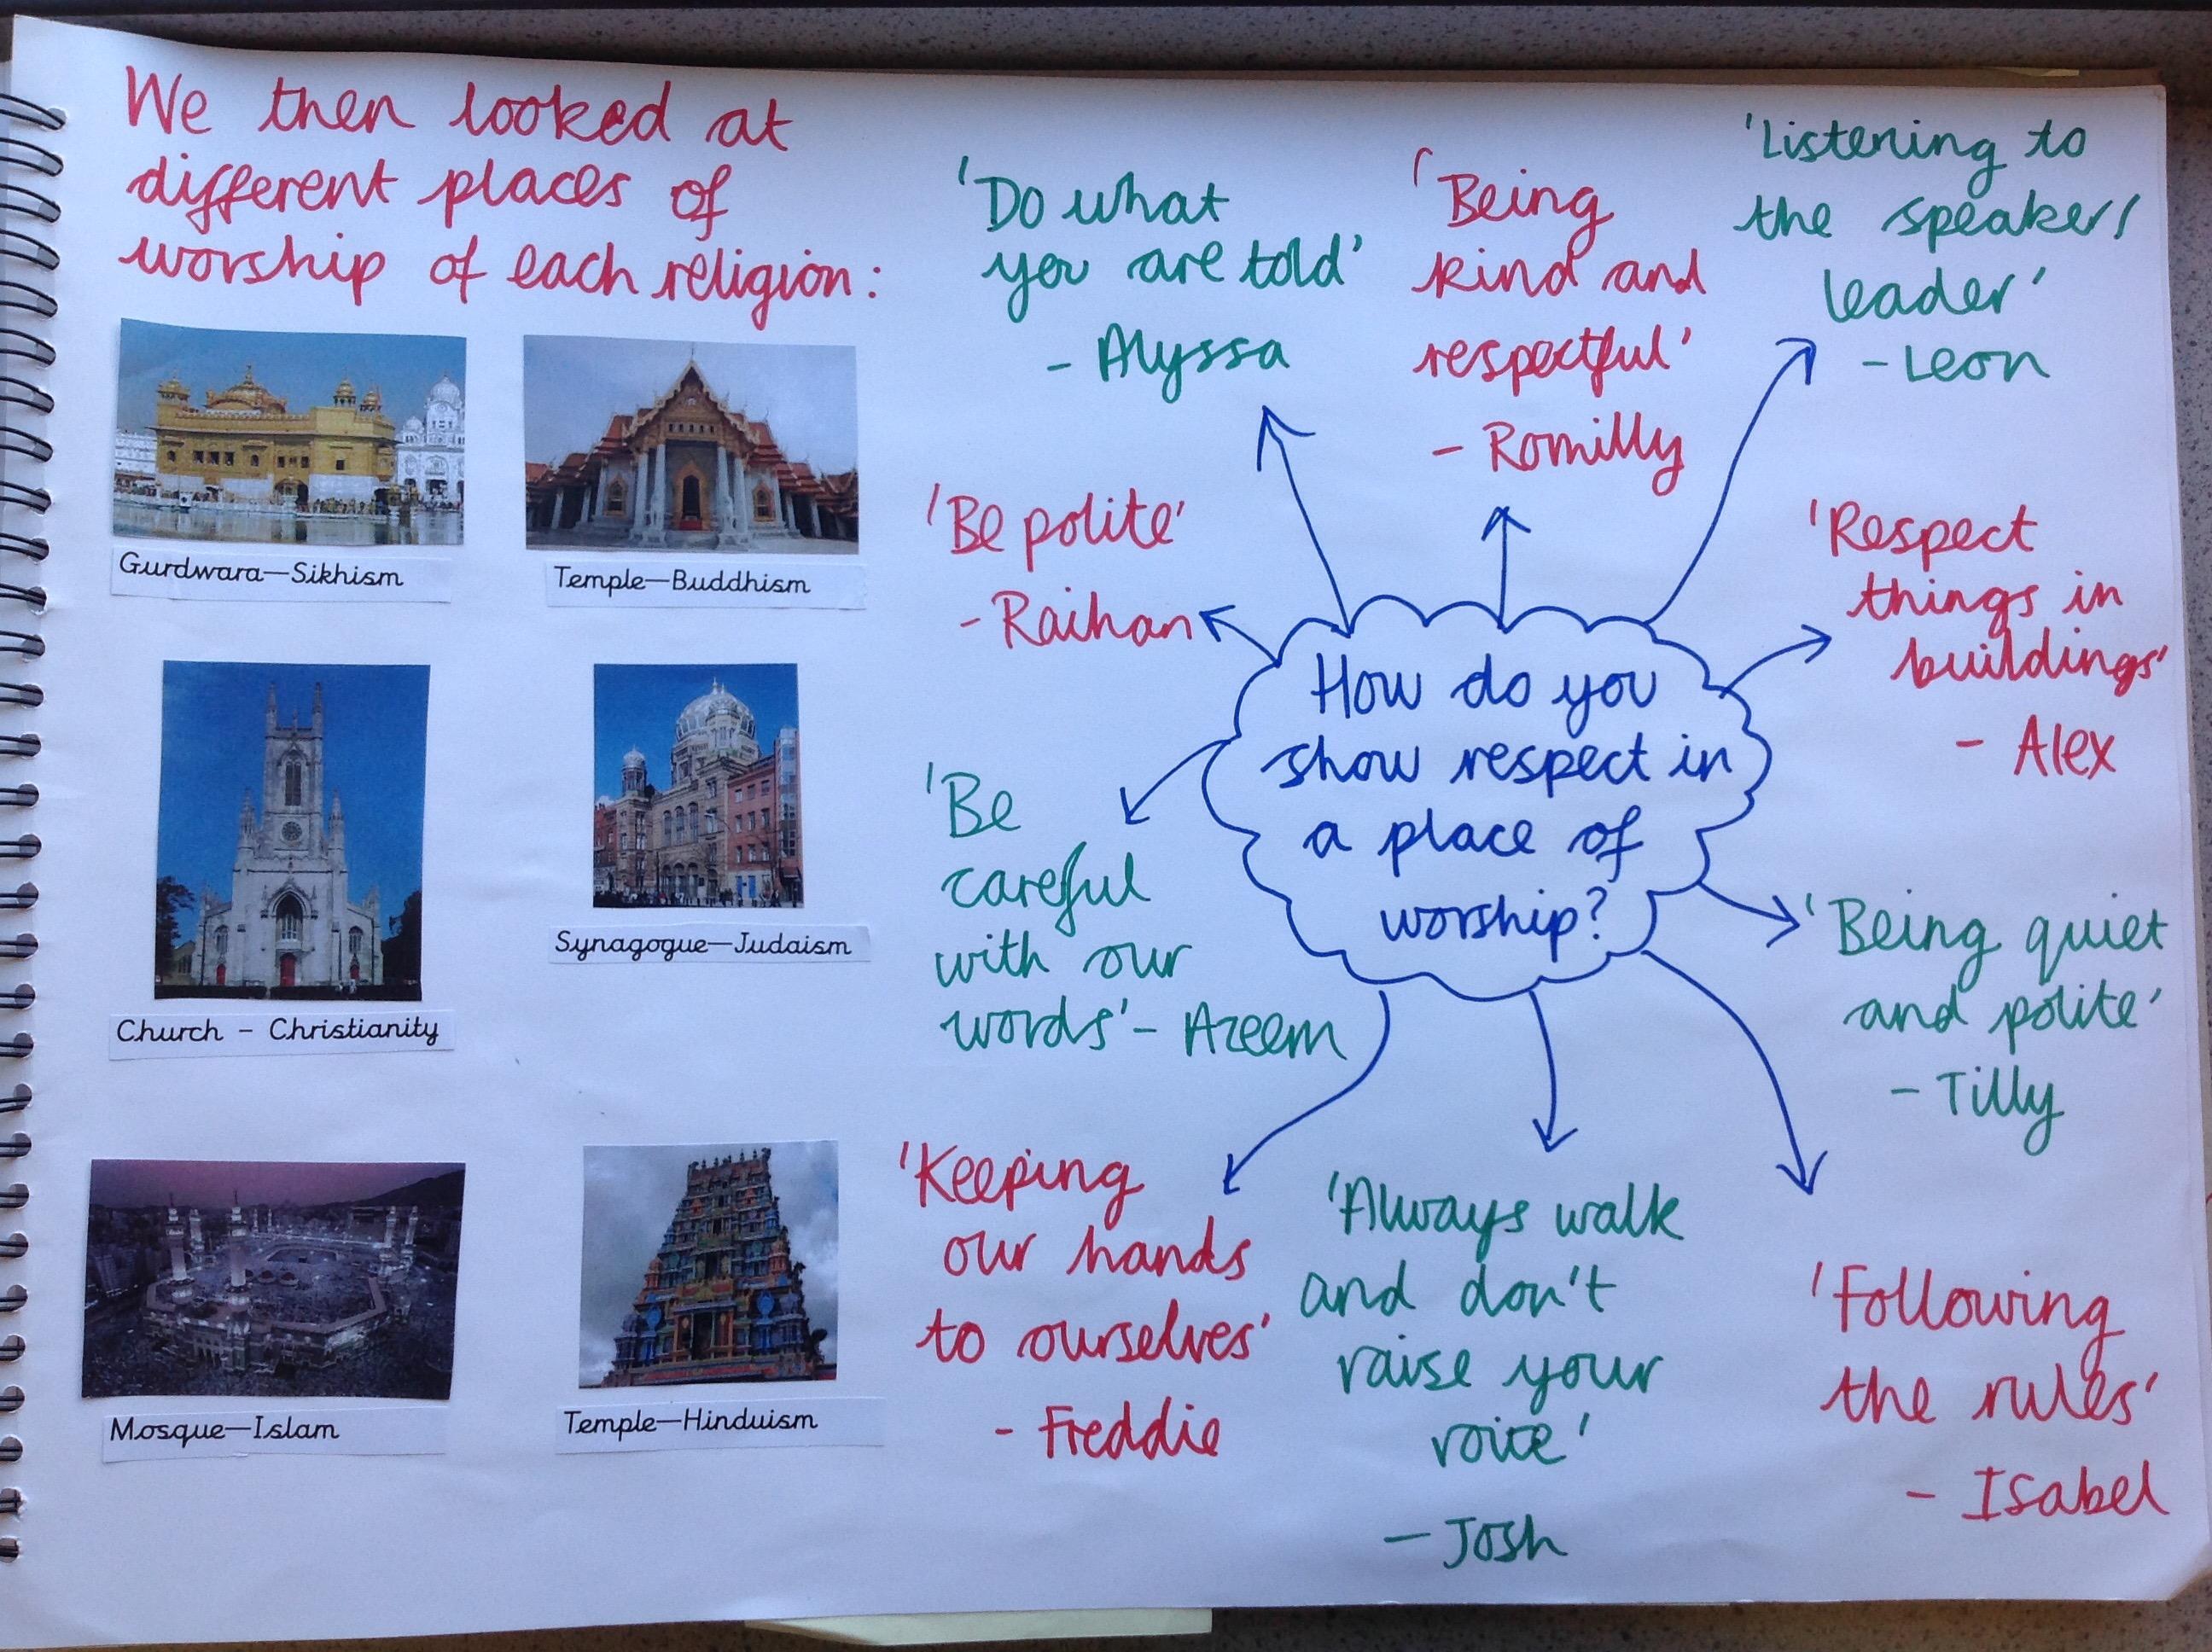 We then looked at
different places of
worship of each religion:
Gurdwara—Sikhism
Temple—Buddhism
Church - Christianity
Synagogue—Judaism
Mosque—Islam
Temple—Hinduism
How do you
show respect in
a place of
worship?
'Do what
you are told'
- Alyssa
'Being
kind and
respectful'
- Romilly
'Listening to
the speaker/
leader'
- Leon
'Be polite'
- Raihan
'Respect
things in
buildings'
- Alex
'Be
careful
with our
words' - Azeem
'Being quiet
and polite'
- Tilly
'Keeping
our hands
to ourselves'
- Freddie
'Always walk
and don't
raise your
voice'
- Josh
'Following
the rules'
- Isabel